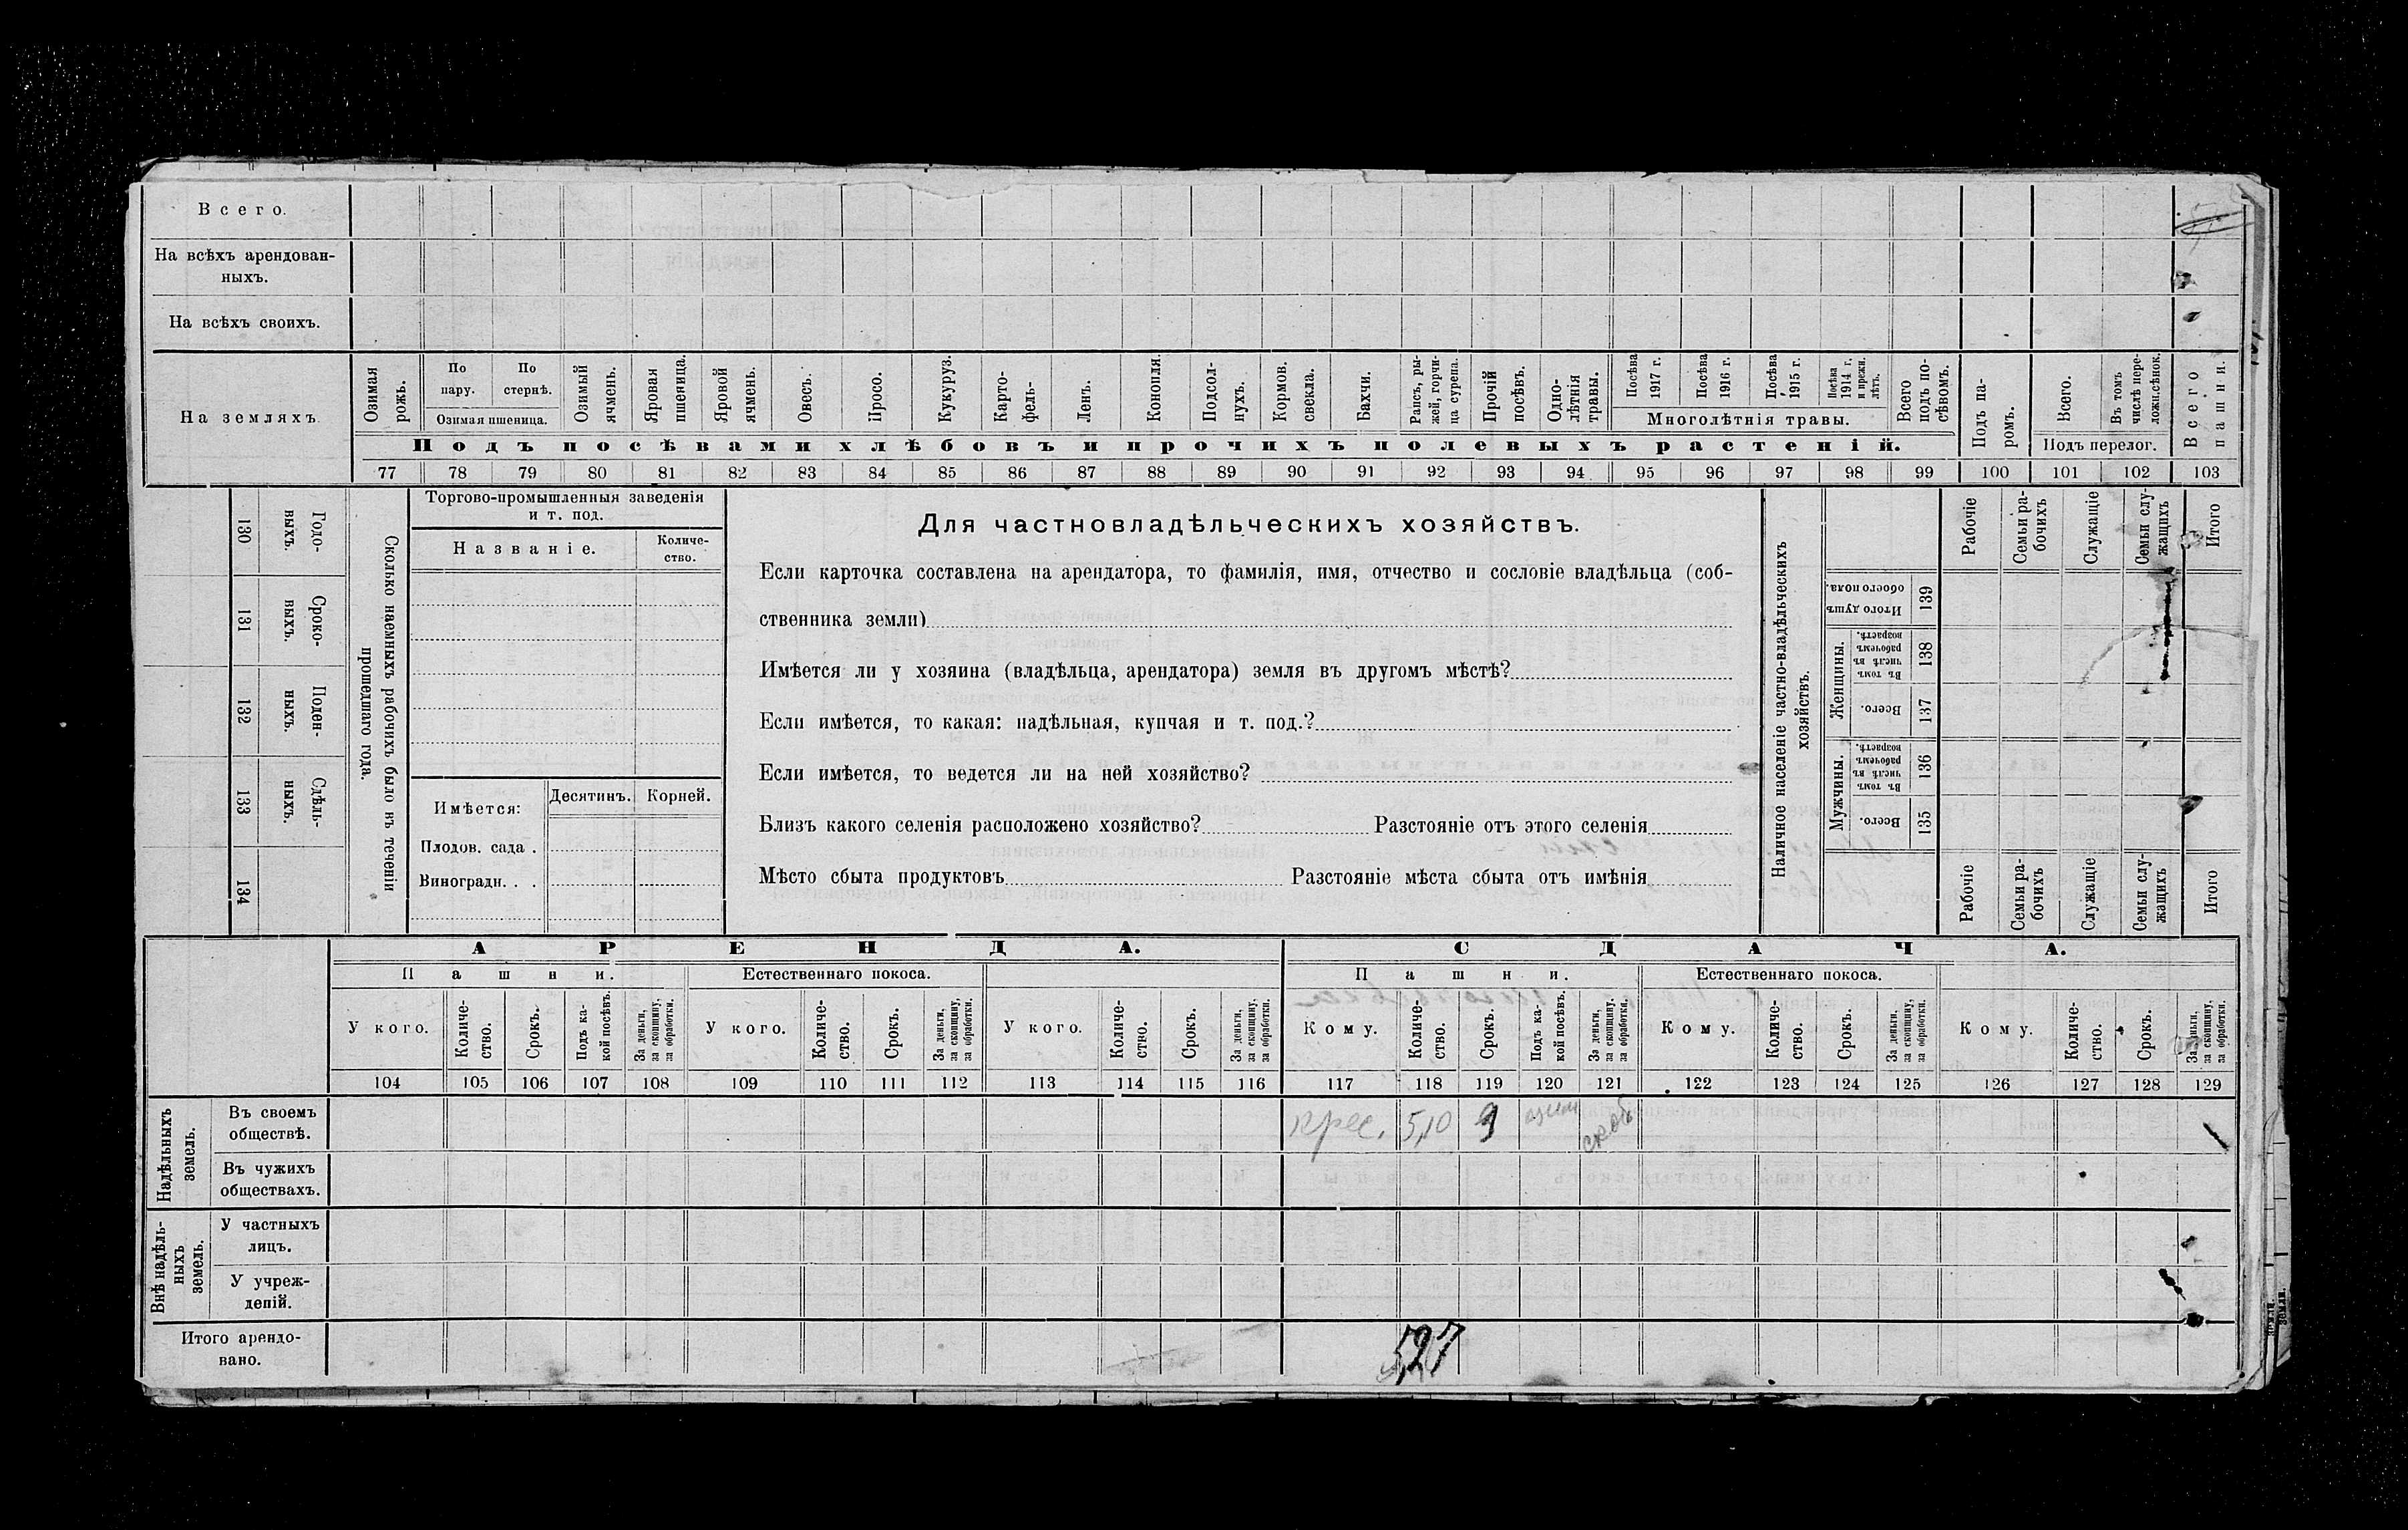 Всего.
На всѣхъ арендован-
ныхъ.
На всѣхъ своихъ.
На земляхъ
Озимая рожь.
По пару.
По стернѣ.
Озимая пшеница.
Озимый ячмень.
Яровая пшеница.
Яровой ячмень.
Овесъ.
Просо.
Кукуруз.
Карто-
фель-
Ленъ.
Конопля.
Подсол-
нухъ.
Кормов. свекла.
Бахчи.
Рапсъ, ры-
жей, горчи-
ца сурепа.
Прочій посѣвъ.
Одно-
лѣтнія травы.
Посѣва 1917 г.
Посѣва 1916 г.
Посѣва 1915 г.
Посѣва 1914 г. и прежн. лѣтъ.
Многолѣтнія травы.
Всего подъ по-
сѣвомъ.
Подъ посѣвами хлѣбовъ и прочихъ полевыхъ растеній.
Подъ па-
ромъ.
Всего.
Въ томъ числѣ пере-
ложн.сѣнок.
Подъ перелог.
Всего пашни.
77 78 79 80 81 82 83 84 85 86 87 88 89 90 91 92 93 94 95 96 97 98 99 100 101 102 103
130 Годо-
выхъ.
131 Сроко-
выхъ.
132 Поден-
ныхъ.
133 Сдѣль-
ныхъ.
134
Сколько наемныхъ рабочихъ было въ теченіи
прошедшаго года.
Торгово-промышленныя заведенія
и т. под.
Названіе.
Количе-
ство.
Имѣется:
Десятинъ.
Корней.
Плодов. сада .
Виноградн. . .
Для частновладѣльческихъ хозяйствъ.
Если карточка составлена на арендатора, то фамилія, имя, отчество и сословіе владѣльца (соб-
ственника земли)
Имѣется ли у хозяина (владѣльца, арендатора) земля въ другомъ мѣстѣ?
Если имѣется, то какая: надѣльная, купчая и т. под.?
Если имѣется, то ведется ли на ней хозяйство?
Близъ какого селенія расположено хозяйство? Разстояніе отъ этого селенія
Мѣсто сбыта продуктовъ Разстояніе мѣста сбыта отъ имѣнія
Наличное населеніе частно-владѣльческихъ
хозяйствъ.
Рабочіе
Семьи ра-
бочихъ
Служащіе
Семьи слу-
жащихъ
Итого
Итого душъ обоего пола. 139
Женщины.
Въ томъ числѣ въ рабочемъ возрастѣ. 138
Всего. 137
Мужчины.
Въ томъ числѣ въ рабочемъ возрастѣ. 136
Всего. 135
Рабочіе
Семьи ра-
бочихъ
Служащіе
Семьи слу-
жащихъ
Итого
АРЕНДА.
СДАЧА.
Пашни.
Естественнаго покоса.
Пашни.
Естественнаго покоса.
У кого.
Количе-
ство.
Срокъ.
Подъ ка-
кой посѣвъ.
За деньги, за скопщину, за обработки.
У кого.
Количе-
ство.
Срокъ.
За деньги, за скопщину, за обработки.
У кого.
Количе-
ство.
Срокъ.
За деньги, за скопщину, за обработки.
Кому.
Количе-
ство.
Срокъ.
Подъ ка-
кой посѣвъ.
За деньги, за скопщину. за обработки.
Кому.
Количе-
ство.
Срокъ.
За деньги, за скопщину, за обработки.
Кому.
Количе-
ство.
Срокъ.
За деньги, за скопщину, за обработки.
104 105 106 107 108 109 110 111 112 113 114 115 116 117 118 119 120 121 122 123 124 125 126 127 128 129
Надѣльныхъ земель.
Въ своемъ
обществѣ.
крес. 5,10 9 озим
Въ чужихъ
обществахъ.
Внѣ надѣль-
ныхъ земель.
У частныхъ
лицъ.
У учреж-
деній.
Итого арендо-
вано.
5,27
земли.